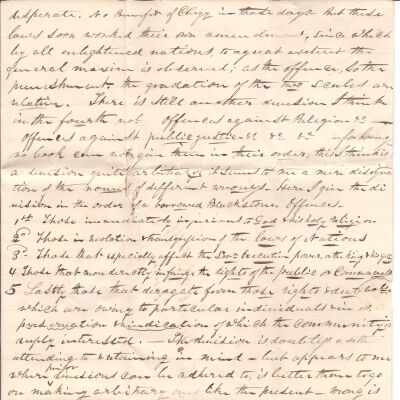 desperate. No Benefit of Clergy in those days But these
laws soon worked their own amendment, since which
by all enlightened nations, to a great extent the
general maxim is observed; as the offence, so the
punishment. the gradation of the two scales are
relative. There is still another division I think
in the fourth vol Offences against Religion &c
Offences against public justice &c &c &c — for having
no book can not give them in their order, this I think is
a division quite arbitrary, it seems to me a mere
tion of the names of different wrongs. Here I give the di
vision in the order of a borrowed Blackstone. Offences.
1st Those immediately injurious to God & his holy Religion
2nd Those in violation & transgression of the laws of Nations
3d Those that especially affect the Sov. Executive power, or the king & his govt
4 Those that more directly infringe the rights of the public or Commonwealth
5 Lastly those that derogate from those rights & duties
which are owing to particular individuals & in
preservation & vindication of which the community is
deeply interested. — The division is doubtless worth
attending to & retaining in mind — but appears to me
when prior divisions can be adhered to, is better than to go
on making arbitrary ones like the present — Wrong is